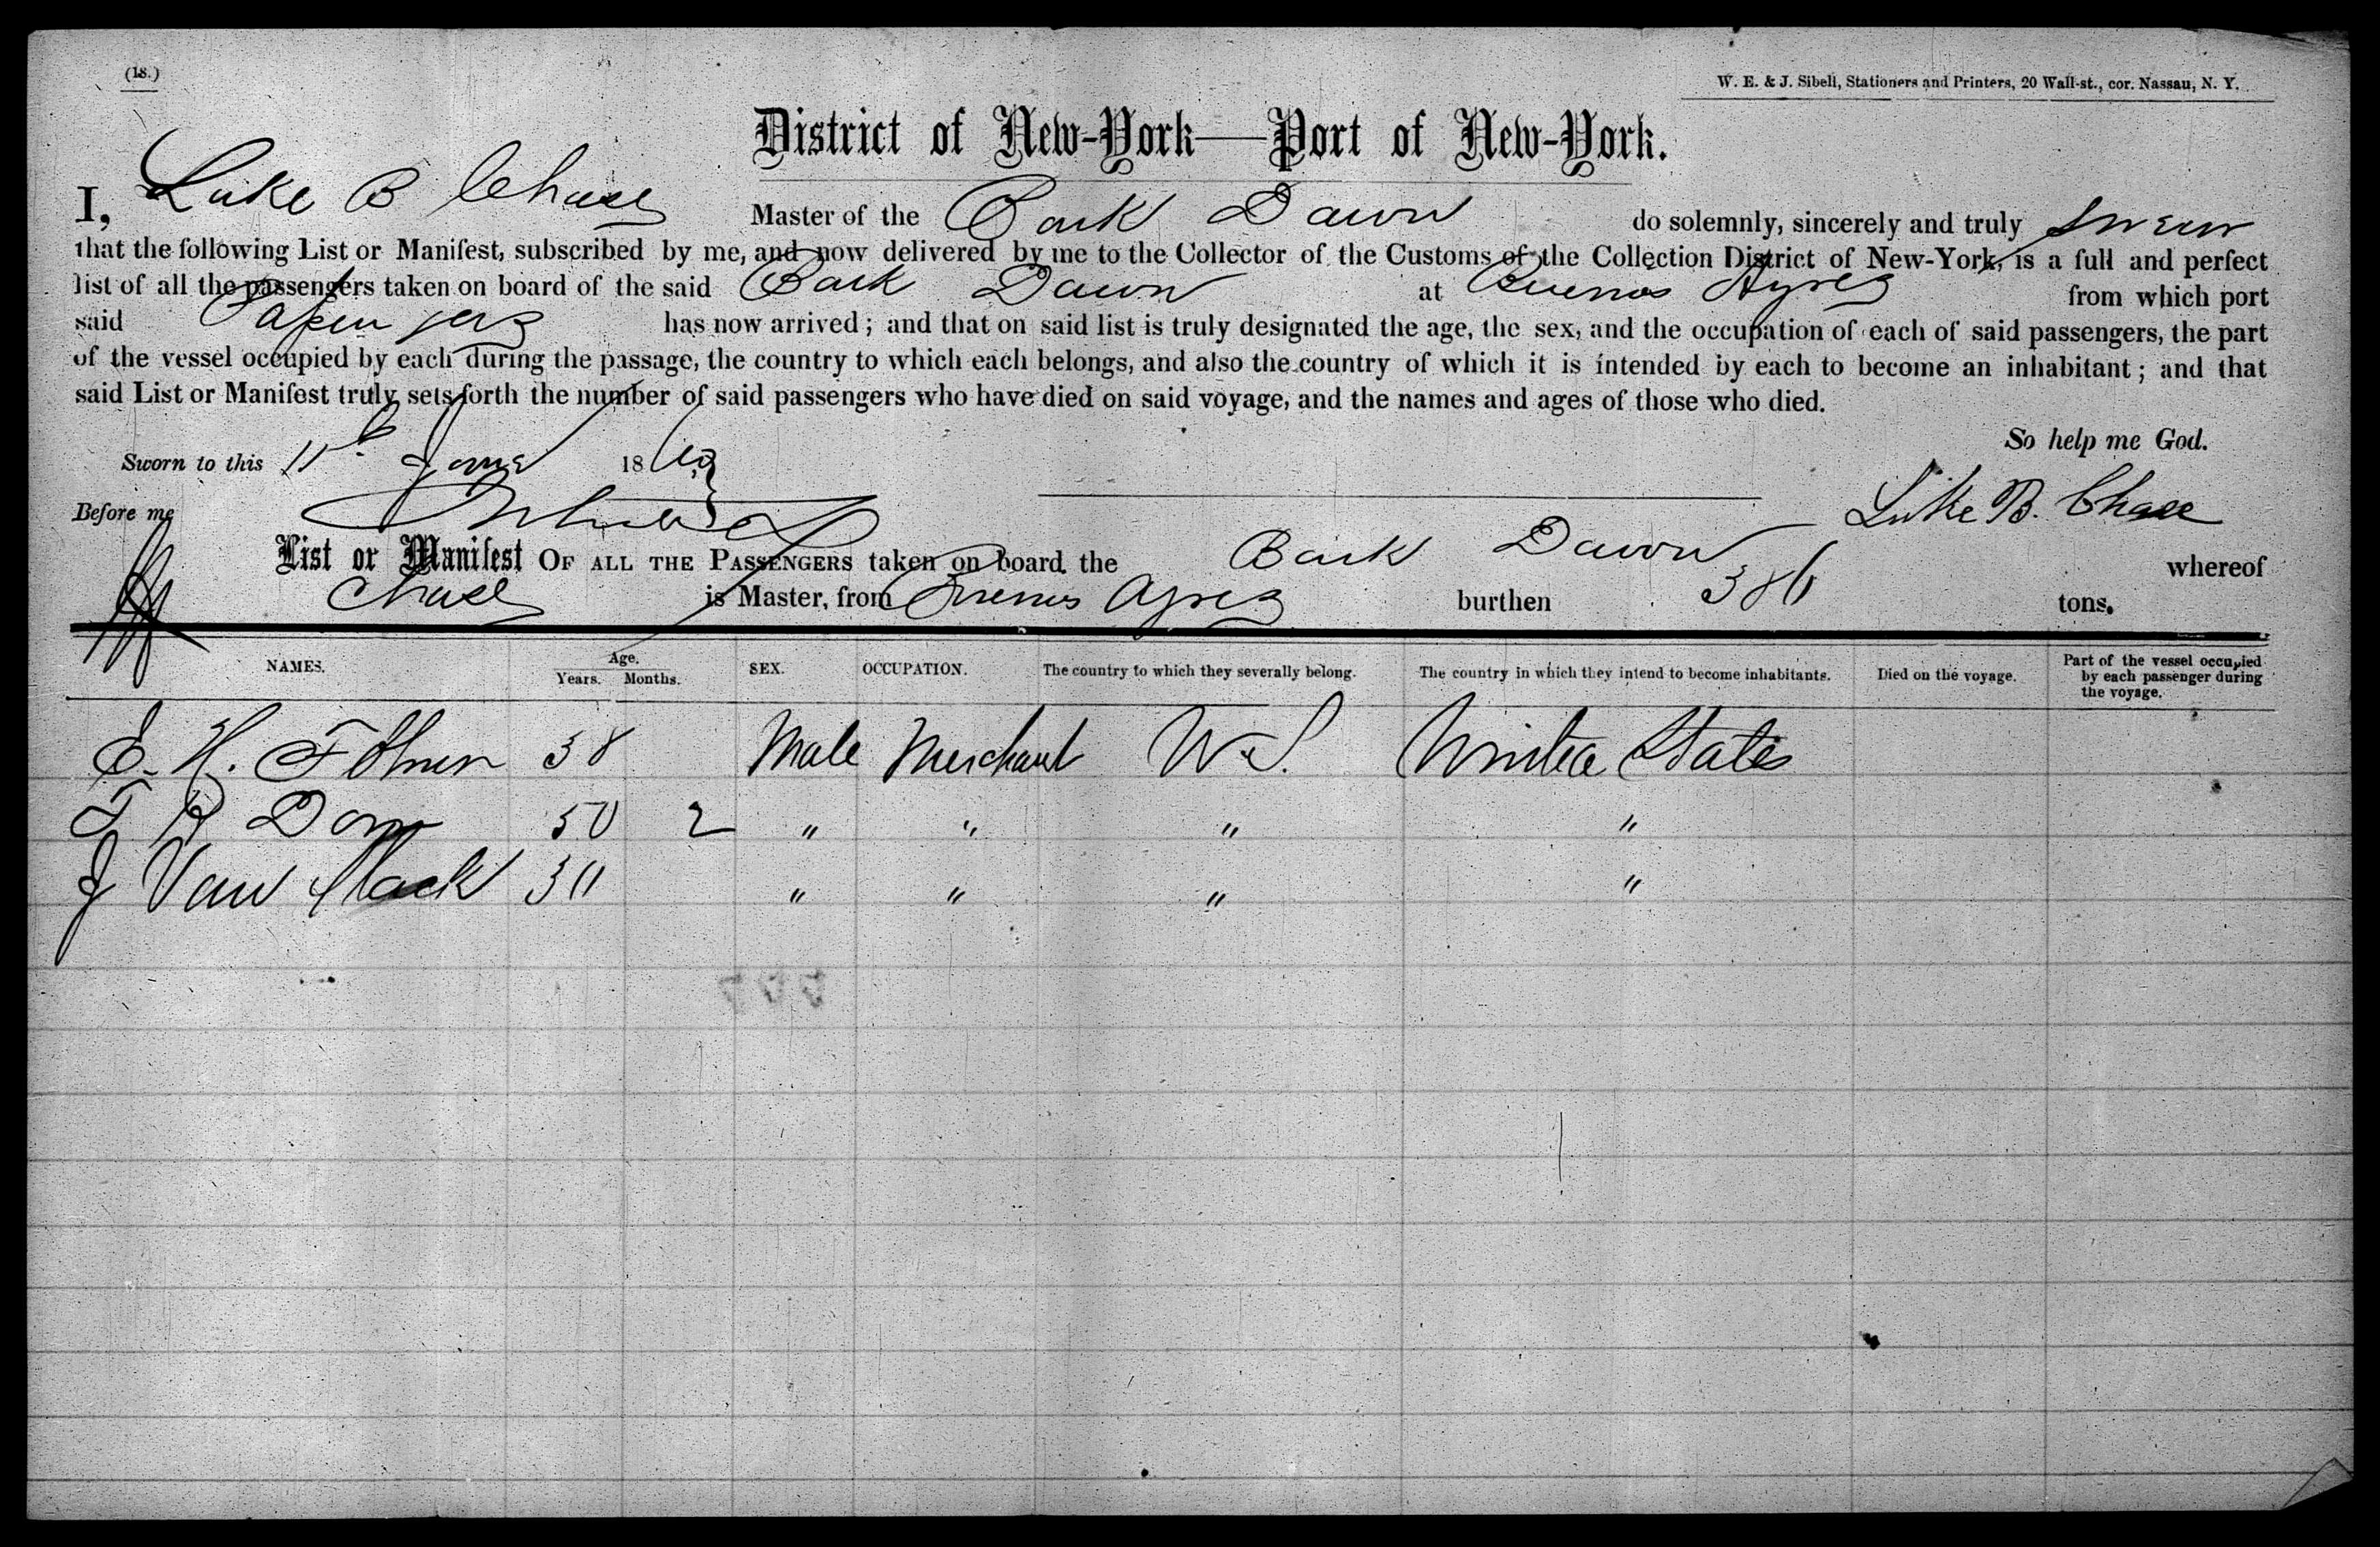 (18.)
W. E. & J. Sibell, Stationers and Printers, 20 Wall-st., cor. Nassau, N. Y.
District of New-York—Port of New-York.
I, Luke B Chase Master of the Bark Dawn do solemnly, sincerely and truly swear
that the following List or Manifest, subscribed by me, and now delivered by me to the Collector of the Customs of the Collection District of New-York, is a full and perfect
list of all the passengers taken on board of the said Bark Dawn at Buenos Ayres from which port
said Passengers has now arrived; and that on said list is truly designated the age, the sex, and the occupation of each of said passengers, the part
of the vessel occupied by each during the passage, the country to which each belongs, and also the country of which it is intended by each to become an inhabitant; and that
said List or Manifest truly sets forth the number of said passengers who have died on said voyage, and the names and ages of those who died.
So help me God.
Sworn to this 11th June 18
Luke B. Chase
Before me
List or Manifest OF ALL THE PASSENGERS taken on board the Bark Dawn whereof
Chase is Master, from Buenos Ayres burthen 386 tons.
NAMES. Age. Years. Months. SEX. OCCUPATION. The country to which they severally belong. The country in which they intend to become inhabitants. Died on the voyage. Part of the vessel occupied by each passenger during the voyage.
E. H. 38 Male Merchant U.S. United States
50 2 " " " "
J Van 30 " " " "